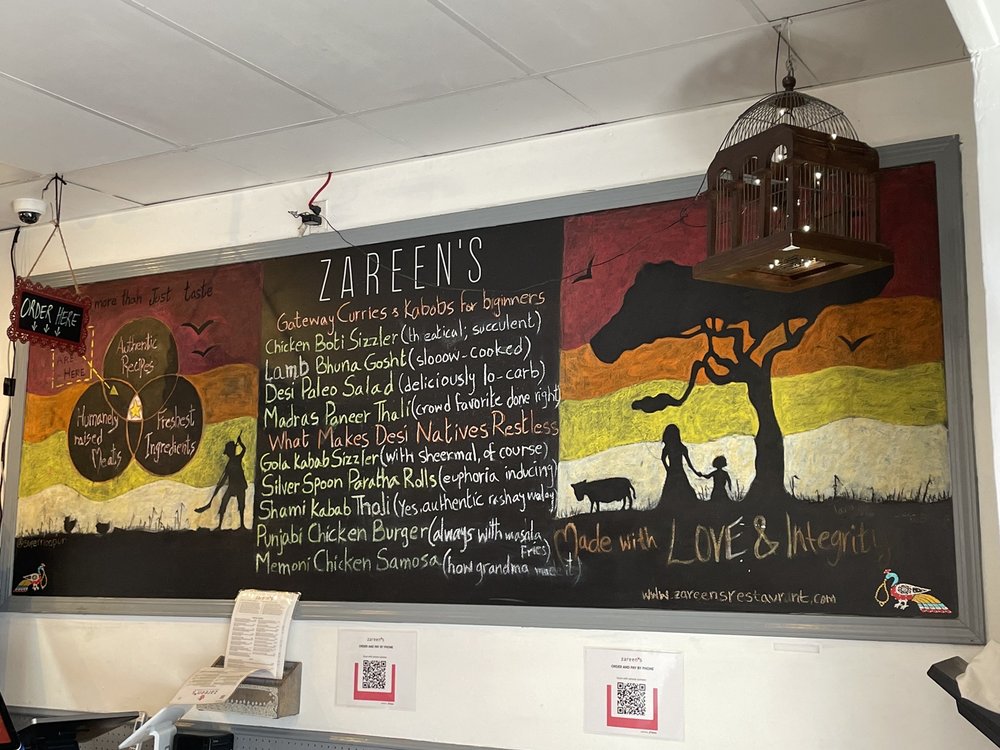 more than Just taste
ORDER HERE
ARE
HERE
Authentic
Recipes
Humanely
raised
Meats
Freshest
Ingredients
ZAREEN'S
Gateway Curries & Kabobs for biginners
Chicken Boti Sizzler (theatical; succulent)
Lamb Bhuna Gosht (slooow-cooked)
Desi Paleo Salad (deliciously lo-carb)
Madras Paneer Thali (crowd favorite done right)
What Makes Desi Natives Restless
Gola Kabab Sizzler (with sheermal, of course)
Silver Spoon Paratha Rolls (euphoria inducing)
Shami Kabab Thali (Yes, authentic
Punjabi Chicken Burger (always with masala
Fries)
Memoni Chicken Samosa (how grandma
Made with LOVE & Integrity
www.zareensrestaurant.com
zareen's
ORDER AND PAY BY PHONE
zareen's
ORDER AND PAY BY PHONE